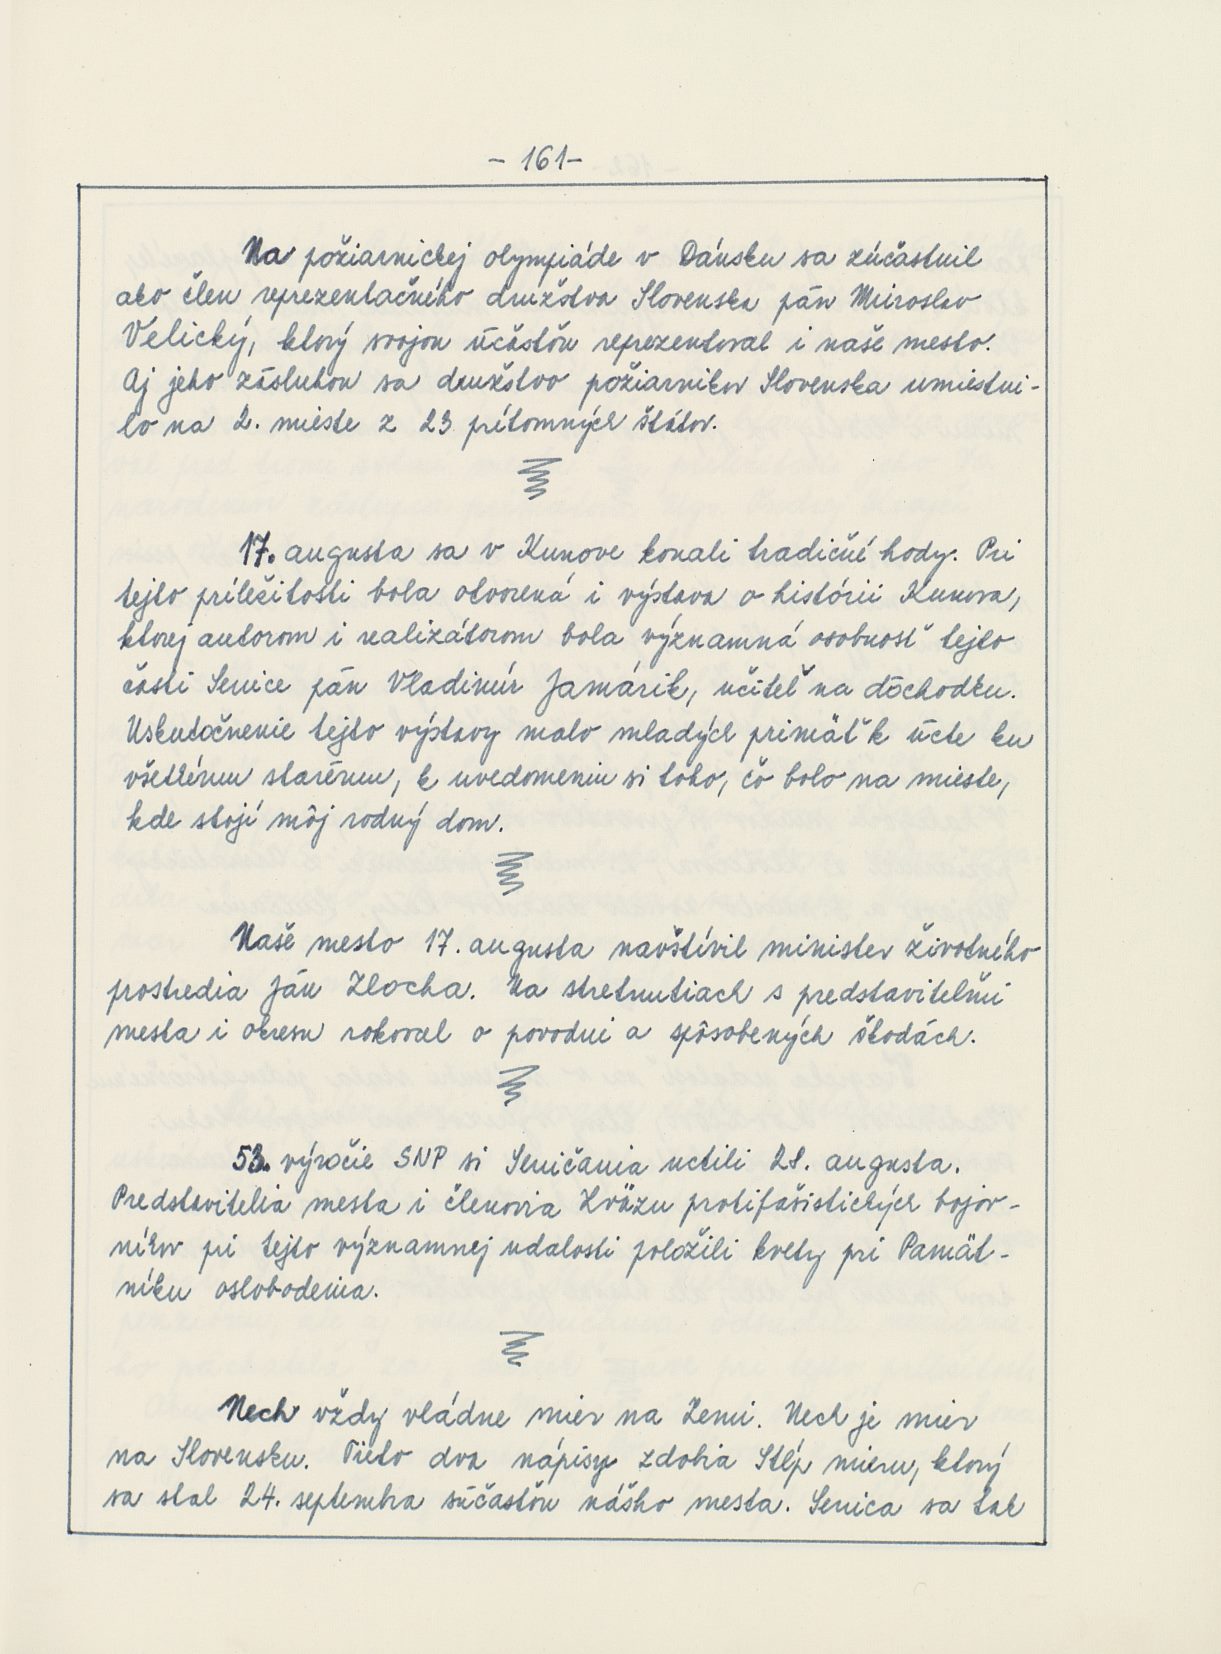 - 161 -
Na požiarnickej olympiáde v Dánsku sa zúčastnil
ako člen reprezentačného družstva Slovenska pán Miroslav
Velický, ktorý svojou účasťou reprezentoval i naše mesto.
Aj jeho zásluhou sa družstvo požiarnikov Slovenska umiestni-
lo na 2. mieste z 23 prítomných štátov.
17. augusta sa v Kunove konali tradičné hody. Pri
tejto príležitosti bola otvorená i výstava o histórii Kunova,
ktorej autorom i realizátorom bola významná osobnosť tejto
časti Senice pán Vladimír Jamárik, učiteľ na dôchodku.
Uskutočnenie tejto výstavy malo mladých primäť k úcte ku
všetkému starému, k uvedomeniu si toho, čo bolo na mieste,
kde stojí môj rodný dom.
Naše mesto 17. augusta navštívil minister životného
prostredia Ján Zlocha. Na stretnutiach s predstaviteľmi
mesta i okresu rokoval o povodni a spôsobených škodách.
53. výročie SNP si Seničania uctili 28. augusta.
Predstavitelia mesta i členovia Zväzu protifašistických bojov-
níkov pri tejto významnej udalosti položili kvety pri Pamät-
níku oslobodenia.
Nech vždy vládne mier na Zemi. Nech je mier
na Slovensku. Tieto dva nápisy zdobia Stĺp mieru, ktorý
sa stal 24. septembra súčasťou nášho mesta. Senica sa tak